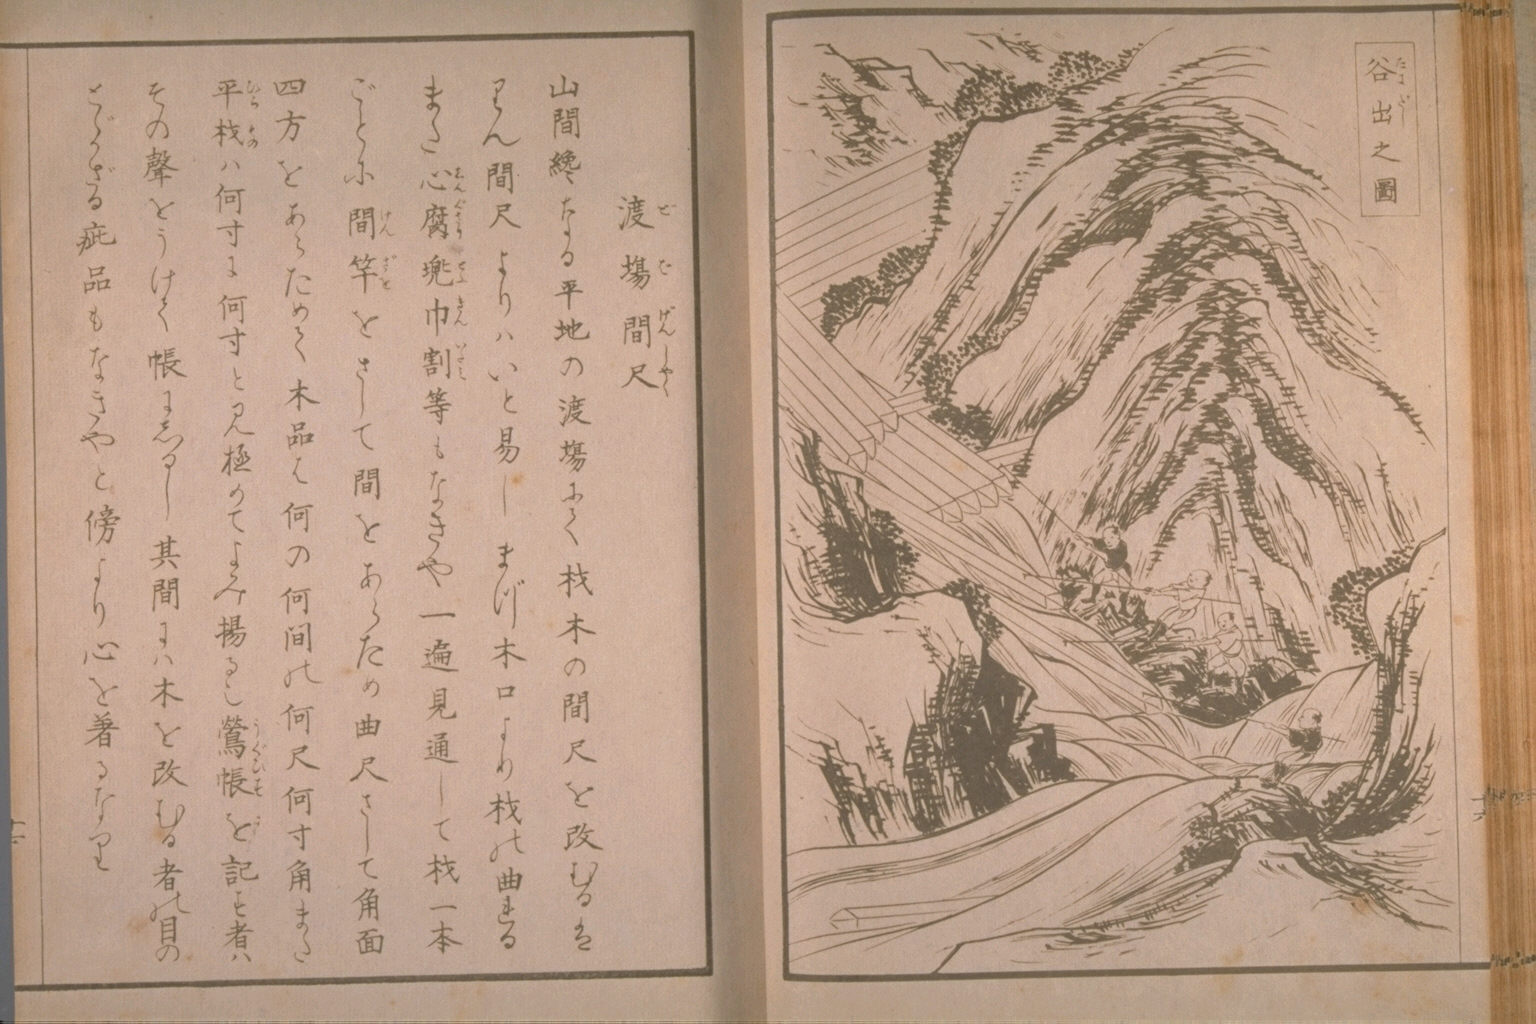 谷出之圖
渡塲間尺
山間纔なる平地の渡塲にて杦木の間尺を改むるは
りん間尺よりハいと易しまづ木口より杦の曲れる
また心腐兠巾割等もなきや一遍見通して杦一本
ごとに間竿をさして間をあらため曲尺さして角面
四方をあらためて木品は何の何间の何尺何寸角また
平杦ハ何寸に何寸と見極めてよみ揚るし鶯帳を記す者ハ
その聲をうけて帳にしるし其間にハ木を改むる者の目の
とゞかざる疵品もなきやと傍より心を著るなり